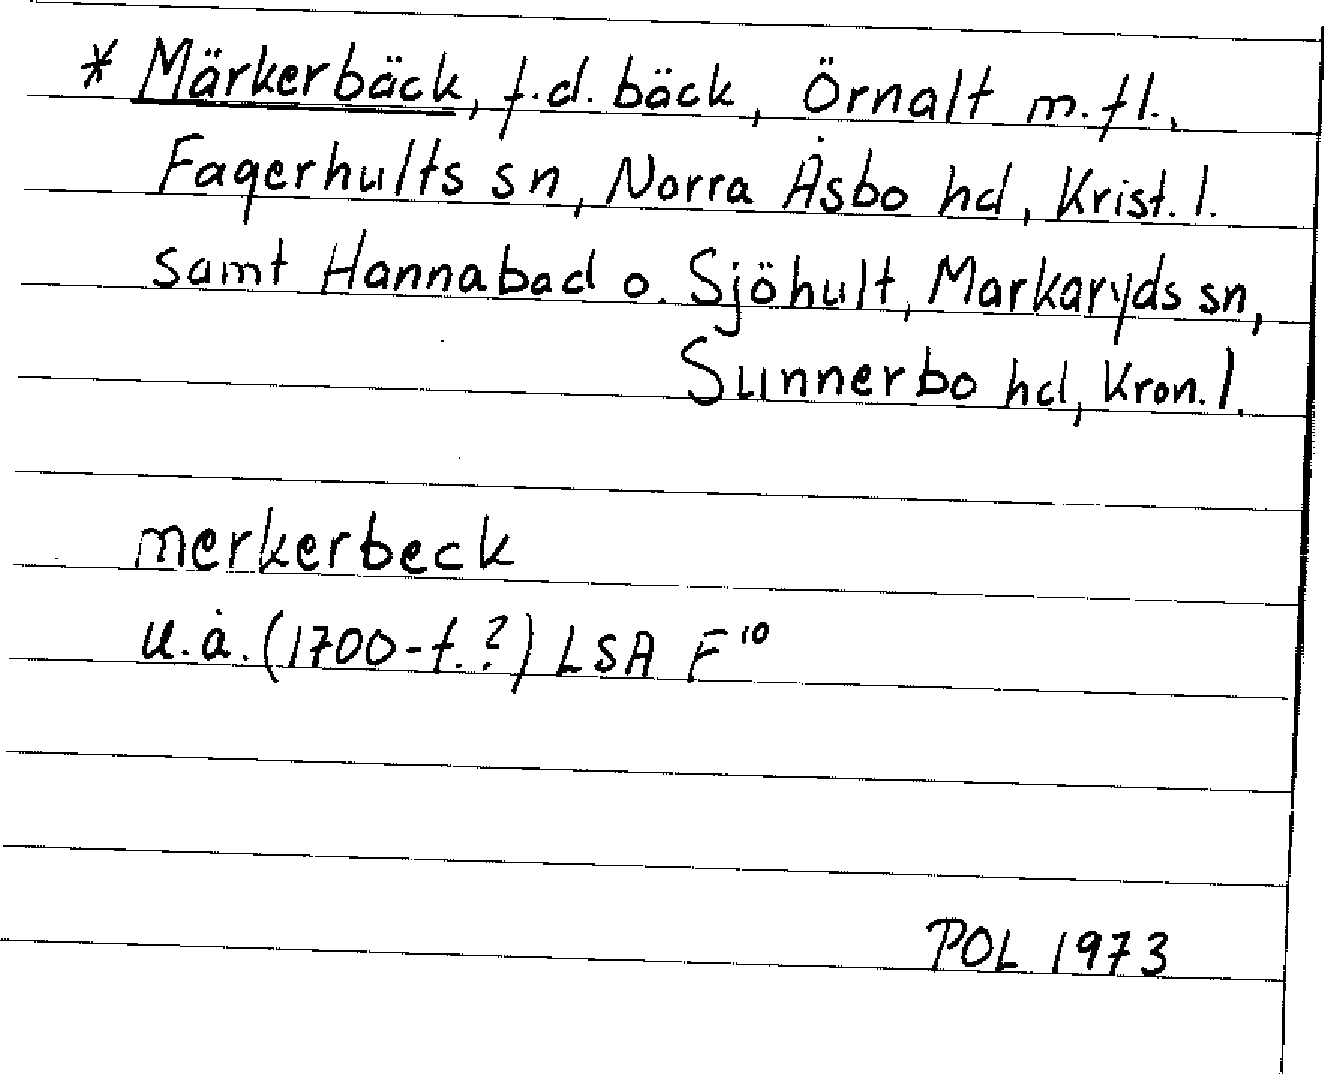 * Märkerbäck, f.d. bäck, Örnalt m.fl.,
Fagerhults sn, Norra Åsbo hd, Krist. l.
samt Hannabad o. Sjöhult, Markaryds sn,
Sunnerbo hd, Kron. l.
merkerbeck
u.å. (1700-t.?) LSA F¹⁰
POL 1973